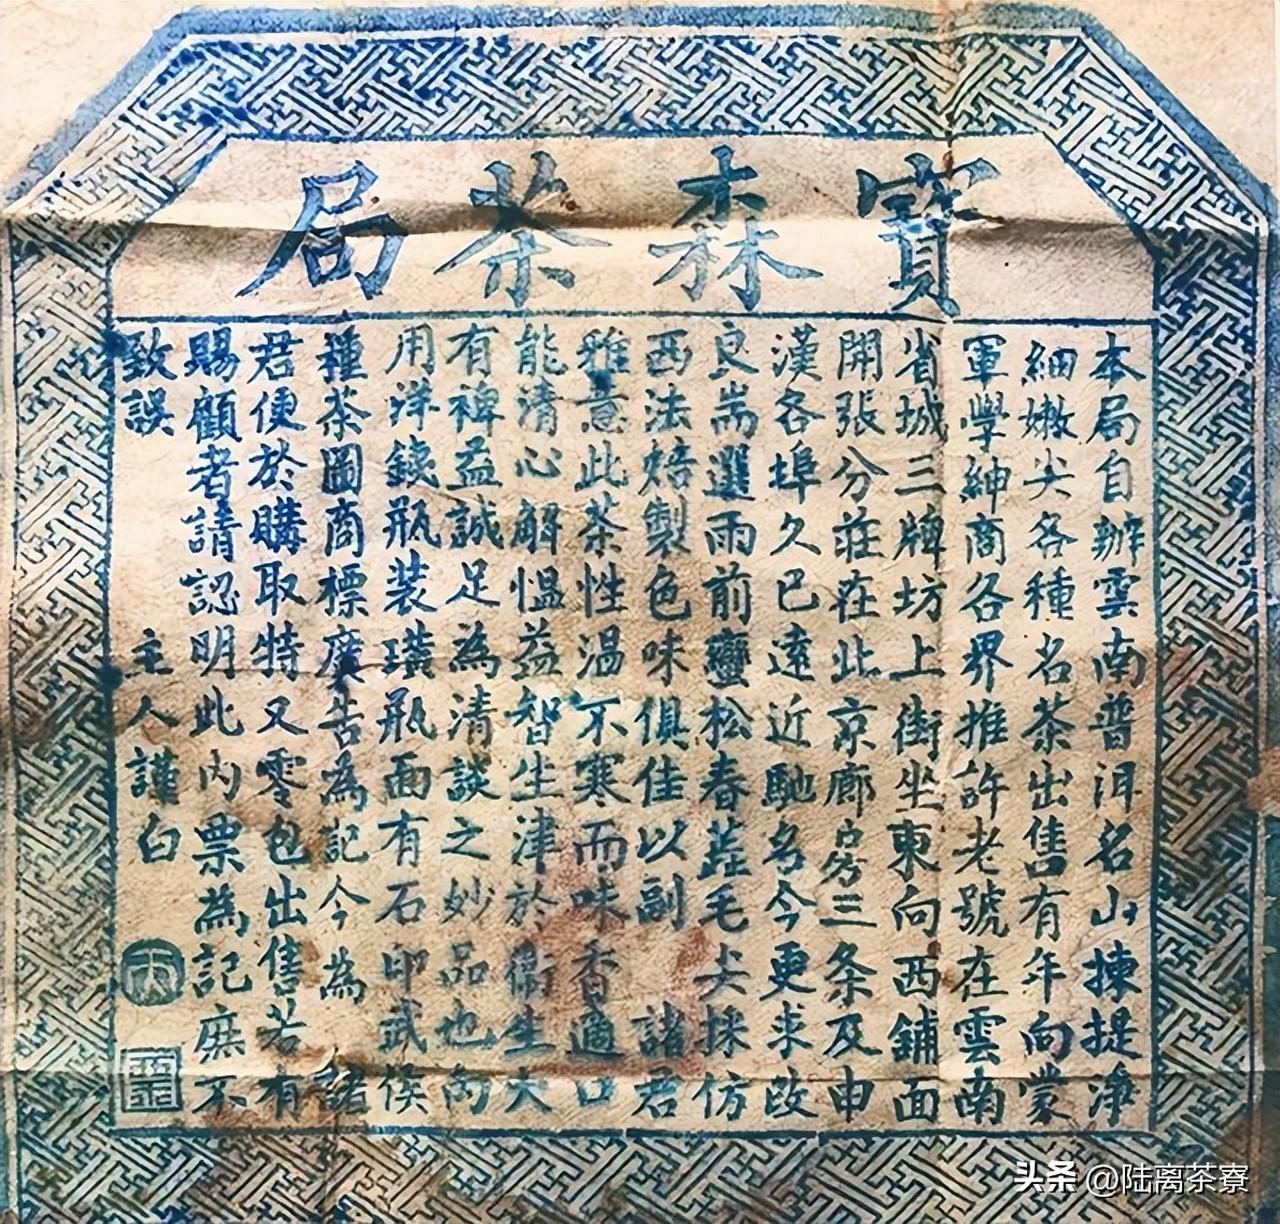 寳森茶局
本局自辦雲南普洱名山揀提淨
細嫩尖各種名茶出售有年向蒙
軍學紳商各界推許老號在雲南
省城三牌坊上街坐東向西鋪面
開張分莊在北京廊房三条及申
漢各埠久已遠近馳名今更求改
良耑選雨前蠻松春蕋毛尖採仿
西法焙製色味俱佳以副 諸君
雅意此茶性温不寒而味香適口
能清心解愠益智生津於衛生大
有裨益誠足為清談之妙品也尚
用洋鉄瓶装璜瓶面有石印武侯
種茶圖商標廣告為記今為 諸
君便於購取特又零包出售若有
賜顧者請認明此內票為記庶不
致誤 主人謹白
头条 @陆离茶寮